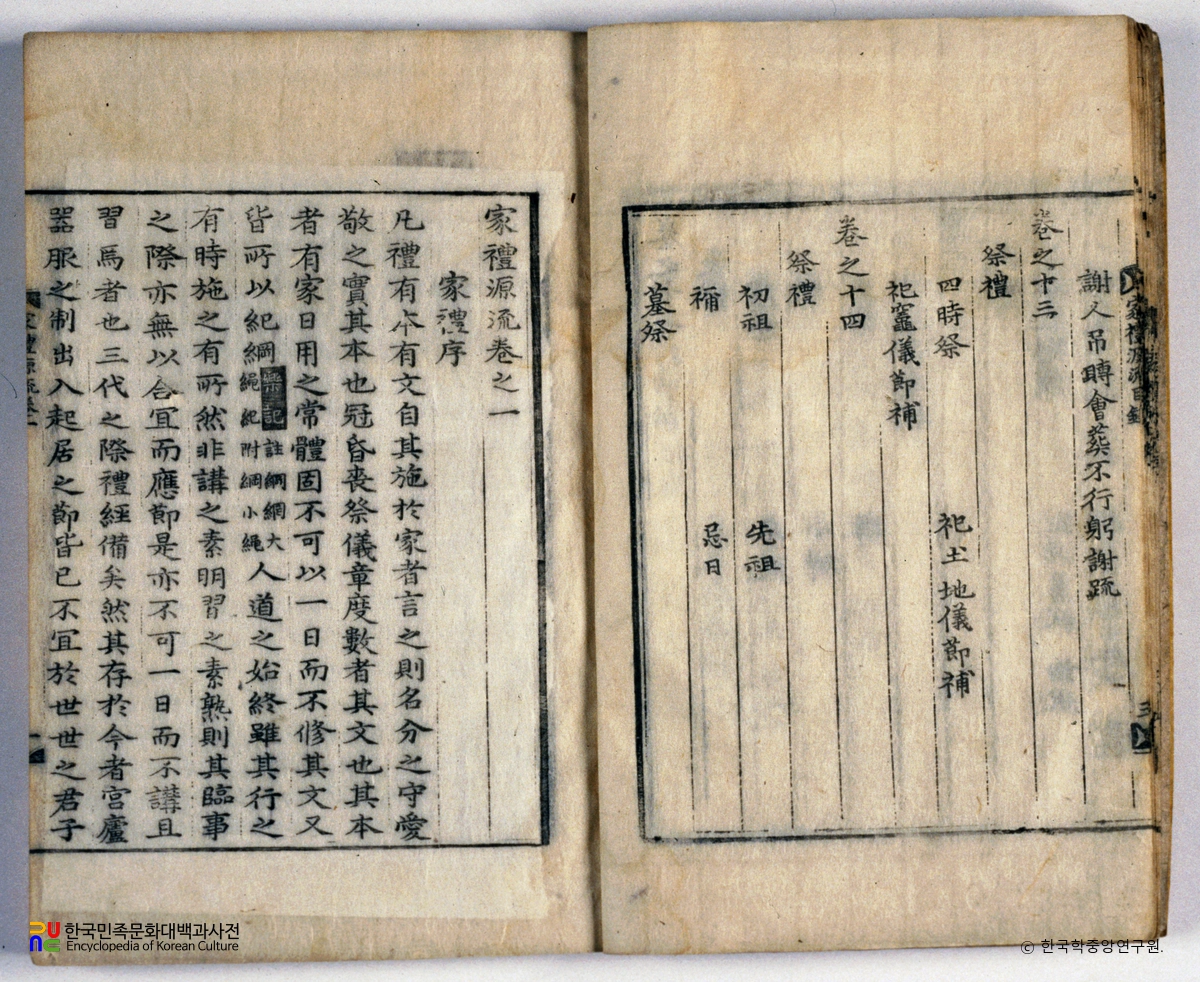 謝人吊賻會葬不行躬謝疏
卷之十三
祭禮
四時祭 祀土地儀節補
祀竈儀節補
卷之十四
祭禮
初祖 先祖
禰 忌日
墓祭
家禮源流卷之一
家禮序
凡禮有本有文自其施於家者言之則名分之守愛
敬之實其本也冠昏喪祭儀章度數者其文也其本
者有家日用之常體固不可以一日而不修其文又
皆所以紀綱樂記註綱網大繩紀附綱小繩人道之始終雖其行之
有時施之有所然非講之素明習之素熟則其臨事
之際亦無以合宜而應節是亦不可一日而不講且
習焉者也三代之際禮經備矣然其存於今者宮廬
器服之制出入起居之節皆已不宜於世世之君子
한국민족문화대백과사전
Encyclopedia of Korean Culture
© 한국학중앙연구원.